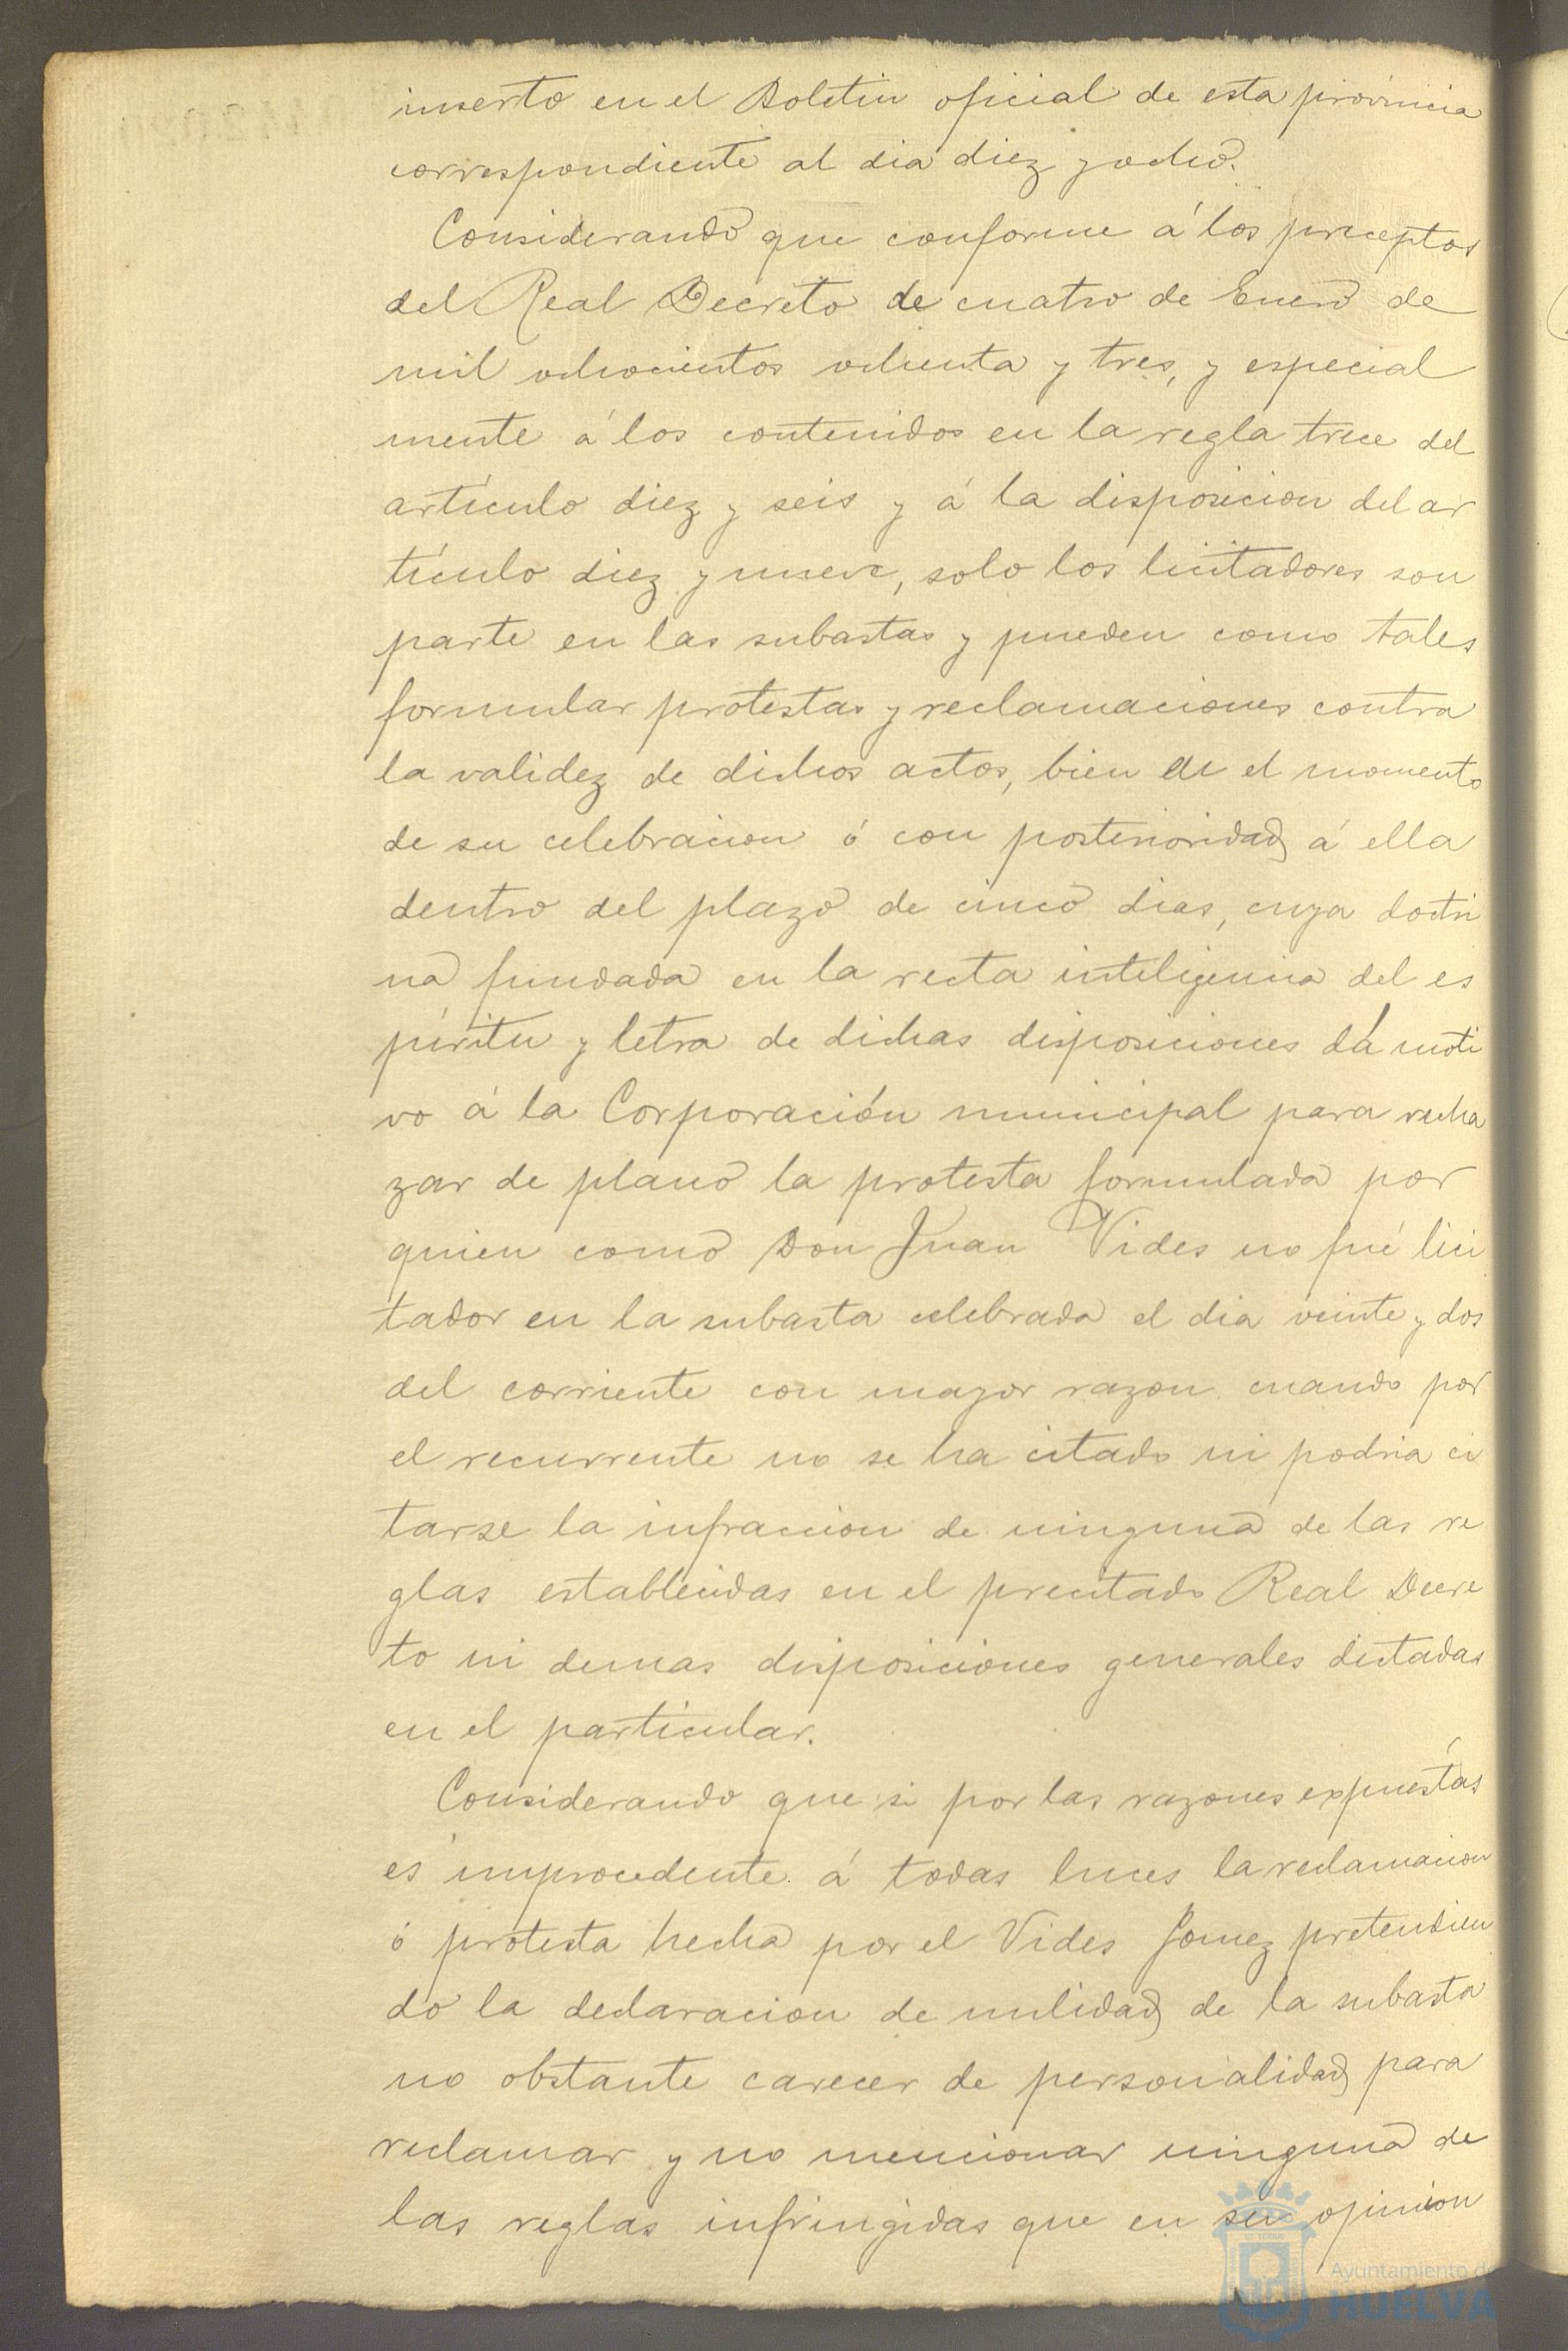 inserto en el Boletin oficial de esta provincia
correspondiente al dia diez y ocho.
Considerando que conforme á los preceptos
del Real Decreto de cuatro de Enero de
mil ochocientos ochenta y tres, y especial
mente á los contenidos en la regla trece del
artículo diez y seis y á la disposicion del ar
tículo diez y nueve, solo los licitadores son
parte en las subastas y pueden como tales
formular protestas y reclamaciones contra
la validez de dichos actos, bien en el momento
de su celebracion ó con posterioridad á ella
dentro del plazo de cinco dias, cuya doctri
na fundada en la recta inteligencia del es
píritu y letra de dichas disposiciones dá moti
vo á la Corporación municipal para recha
zar de plano la protesta formulada por
quien como Don Juan Vides no fué lici
tador en la subasta celebrada el dia veinte y dos
del corriente con mayor razon cuando por
el recurrente no se ha citado ni podria ci
tarse la infraccion de ninguna de las re
glas establecidas en el precitado Real Decre
to ni demas disposiciones generales dictadas
en el particular.
Considerando que si por las razones expuestas
es improcedente á todas luces la reclamacion
ó protesta hecha por el Vides Gomez pretendien
do la declaracion de nulidad de la subasta
no obstante carecer de personalidad para
reclamar y no mencionar ninguna de
las reglas infringidas que en su opinion
Ayuntamiento de
HUELVA